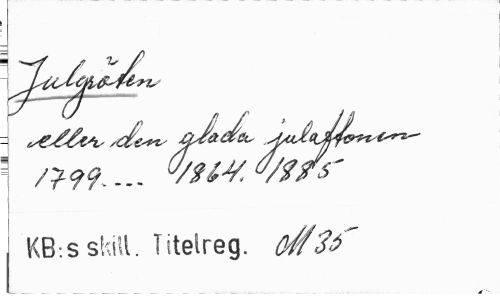 Julgröten
eller den glada julaftonen
1799.... 1864. 1885
KB:s skill. Titelreg. M 35